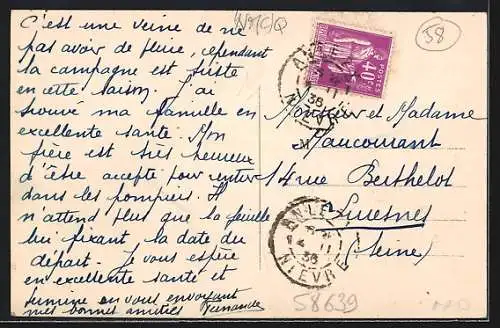 C'est une veine de ne
pas avoir de pluie, cependant
la campagne est triste
en cette saison. J'ai
trouvé ma famille en
excellente santé. Mon
frère est très heureux
d'être accepté pour entrer
dans les pompiers. Il
n'attend plus que la feuille
lui fixant la date du
départ. Je vous espère
en excellente santé et
termine en vous envoyant
mes bonnes amitiés Fernande
58
POSTES
40c
36
NIEVRE
Monsieur et Madame
Maucourant
14 rue Berthelot
Suresnes
(Seine)
ANLEZY
4 - 11
36
NIEVRE
58639